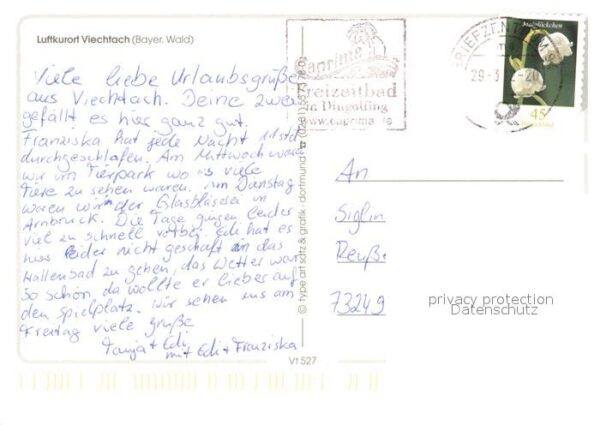 Luftkurort Viechtach (Bayer. Wald)
Viele liebe Urlaubsgrüße
aus Viechtach. Deine zwei
gefällt es hier ganz gut.
Franziska hat jede Nacht
durchgeschlafen. Am Mittwoch waren
wir im Tierpark wo viele
Tiere zu sehen waren. Am Dienstag
waren wir in der Glasbläserei in
Arnbruck. Die Tage gingen leider
viel zu schnell vorbei. Edi hat es
hier leider nicht geschafft in das
Hallenbad zu gehen, das Wetter war
so schön da wollte er lieber auf
den Spielplatz. Wir sehen uns am
Freitag viele grüße
Tanja + Edi
mit Edi + Franziska
Vt 527
© type art satz & grafik · dortmund
caprima
Freizeitbad
in Dingolfing
www.caprima.de
BRIEFZENTRUM
Maiglöckchen
45
Deutschland
An
Siglin
Reuße
73249
privacy protection
Datenschutz